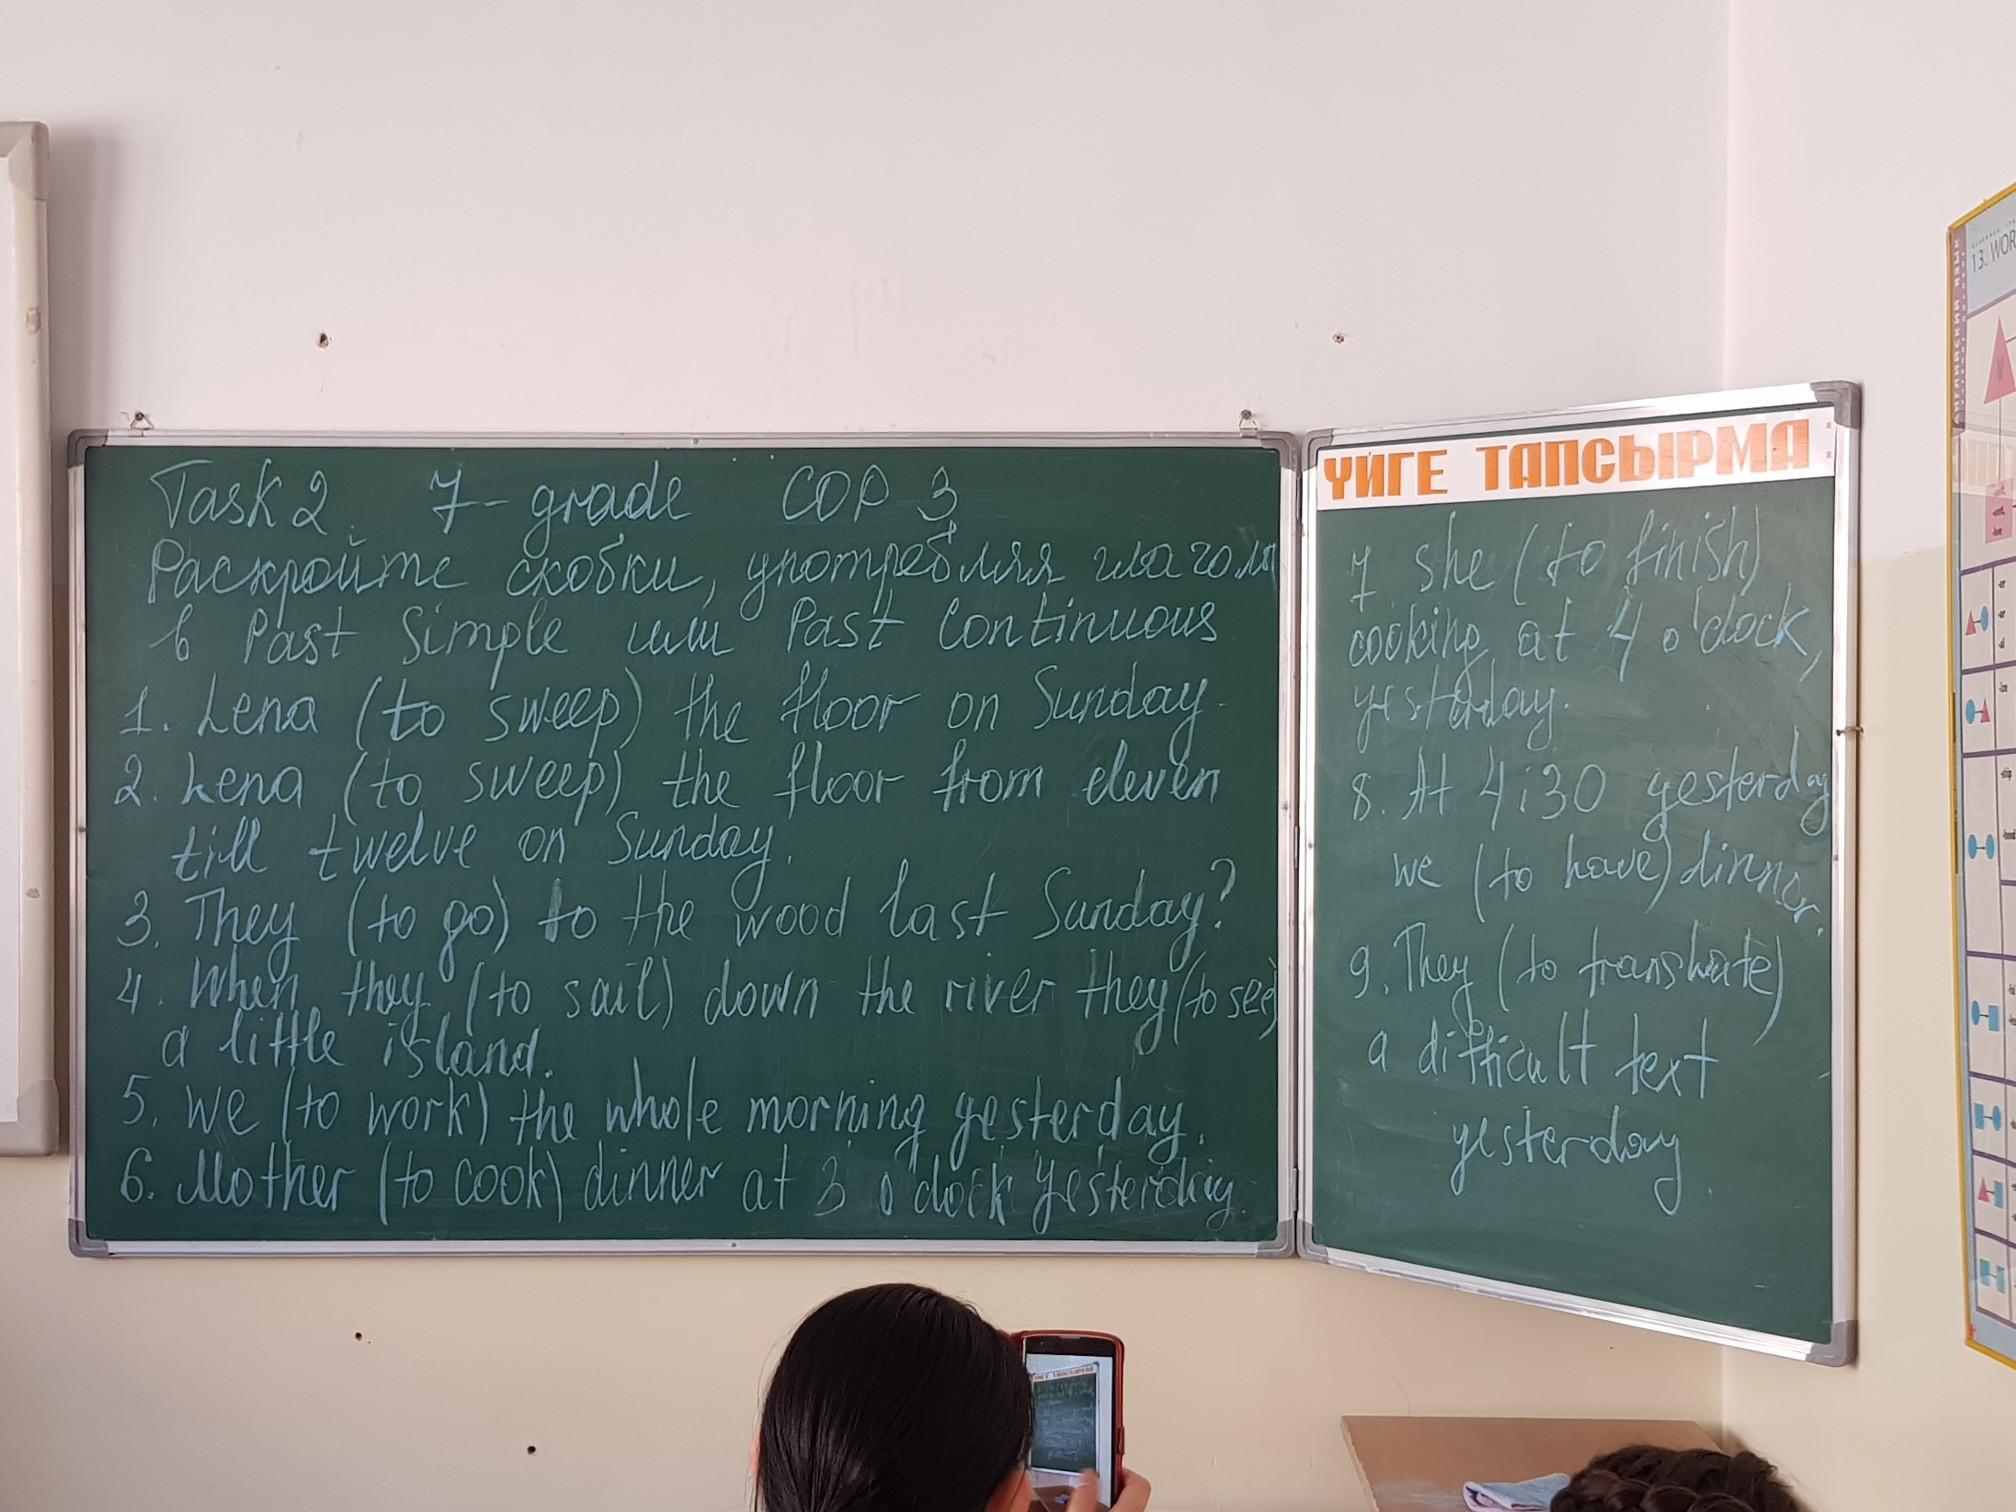 Task 2 7-grade СОР 3
Раскройте скобки, употребляя глаголы
в Past Simple или Past Continuous
1. Lena (to sweep) the floor on Sunday.
2. Lena (to sweep) the floor from eleven
till twelve on Sunday.
3. They (to go) to the wood last Sunday?
4. When they (to sail) down the river they (to see)
a little island.
5. We (to work) the whole morning yesterday.
6. Mother (to cook) dinner at 3 o'clock yesterday.
ҮЙГЕ ТАПСЫРМА:
7 she (to finish)
cooking at 4 o'clock,
yesterday.
8. At 4:30 yesterday
we (to have) dinner.
9. They (to translate)
a difficult text
yesterday.
АНГЛИЙСКИЙ ЯЗЫК
13. WOR